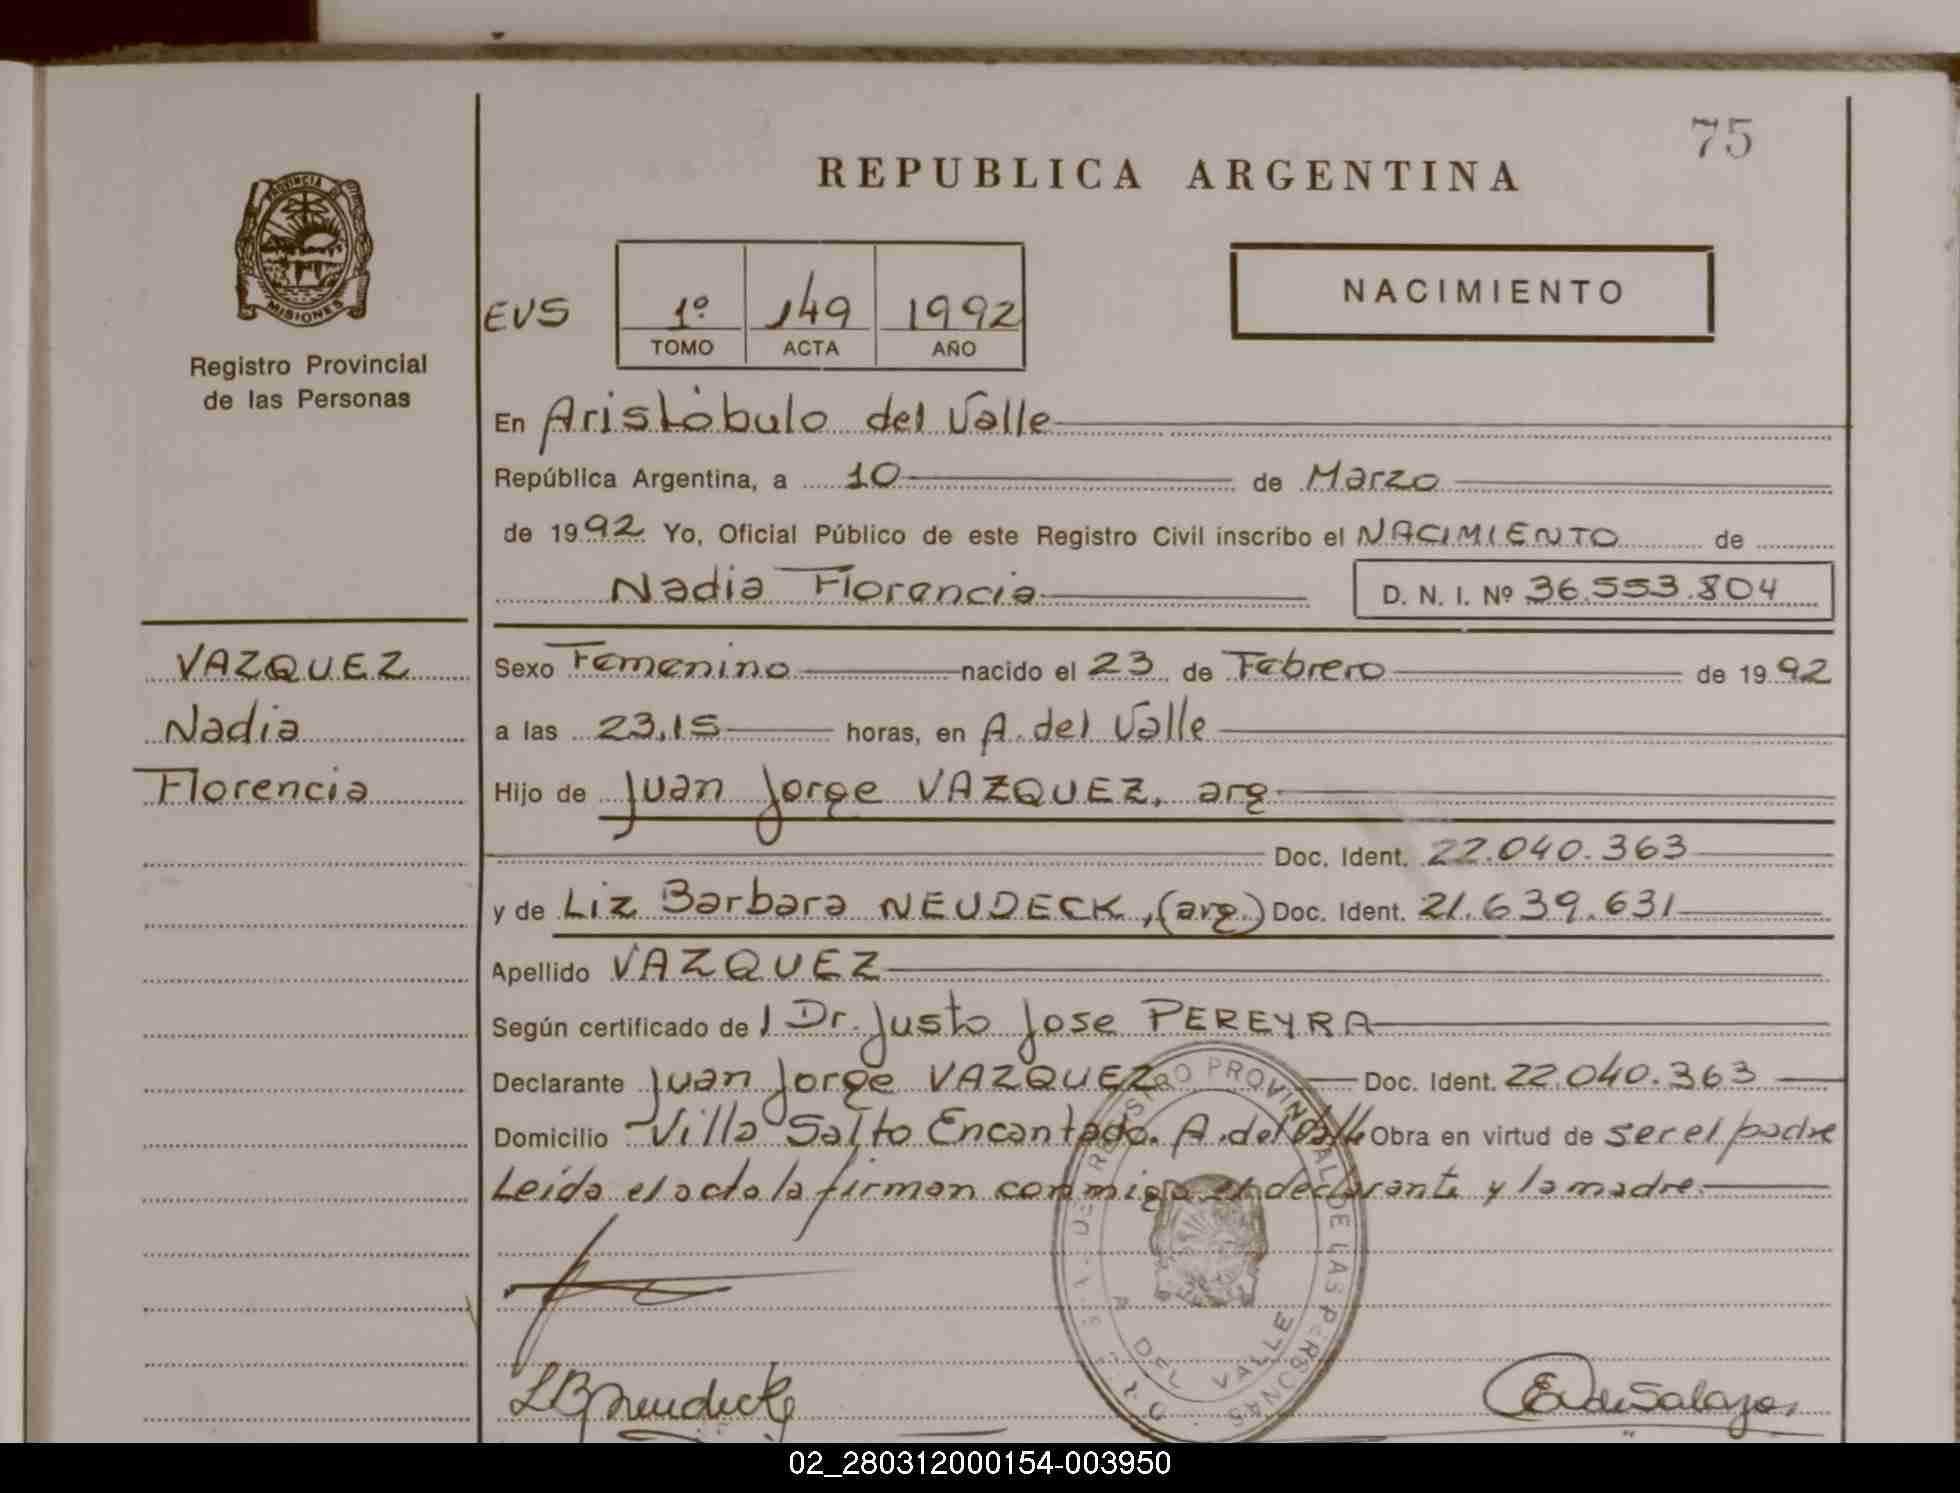 75
REPUBLICA ARGENTINA
PROVINCIA DE
MISIONES
Registro Provincial
de las Personas
EVS
1º 149 1992
TOMO ACTA AÑO
NACIMIENTO
En Aristóbulo del Valle
República Argentina, a 10 de Marzo
de 1992 Yo, Oficial Público de este Registro Civil inscribo el NACIMIENTO de
Nadia Florencia D. N. I. Nº 36.553.804
VAZQUEZ
Nadia
Florencia
Sexo Femenino nacido el 23 de Febrero de 1992
a las 23,15 horas, en A. del Valle
Hijo de Juan Jorge VAZQUEZ, arg
Doc. Ident. 22.040.363
y de Liz Barbara NEUDECK, (arg.) Doc. Ident. 21.639.631
Apellido VAZQUEZ
Según certificado de l Dr. Justo Jose PEREYRA
Declarante Juan Jorge VAZQUEZ Doc. Ident. 22.040.363
Domicilio Villa Salto Encantado. A. del Valle Obra en virtud de ser el padre
Leida el acta la firman conmigo el declarante y la madre.
REGISTRO PROVINCIAL DE LAS PERSONAS
A DEL VALLE
LBNeudeck
02_280312000154-003950